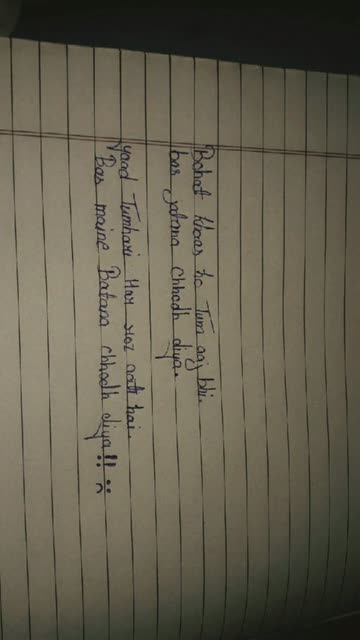 Bohat khaas ho Tum aaj bhi.
bas jatana chhodh diya.
yaad Tumhari Har roz aati hai.
Bas maine Batana chhodh diya!! :(